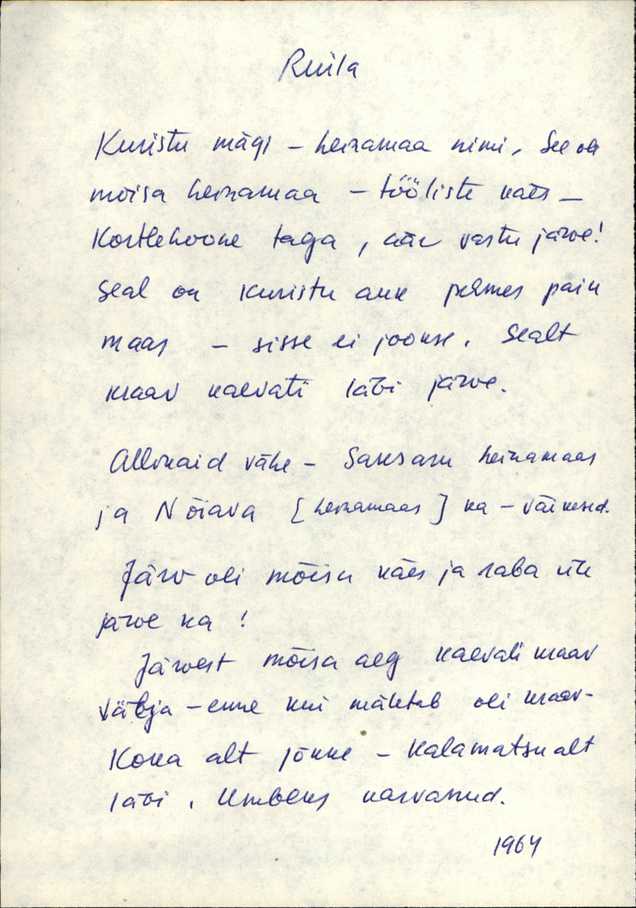 Ruila
Kuristu mägi – heinamaa nimi, See oli
moisa heinamaa – tööliste käes –
Kortlehoone taga, äär vastu järve!
Seal on kuristu auk pehmes pain
maas – sisse ei jookse. Sealt
kraav kaevati läbi järve.
Allikaid vähe – Saksaru heinamaas
ja Nõiava [heinamaas] ka – väikesed.
Järv oli mõisu käes ja raba üle
järve ka!
Järvest mõisa aeg kaevati kraav
välja – enne kui mäletab oli kraav –
Koka alt jõkke – Kalamatsu alt
läbi. Umbens kasvanud.
1964